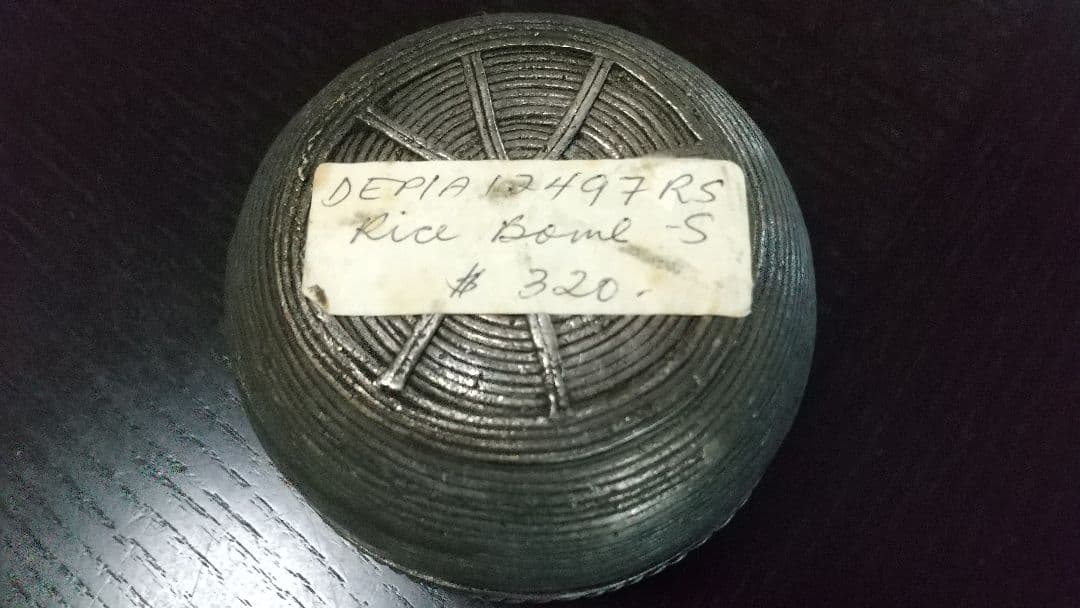 DEPIA 12497 RS
Rice Bowl -S
$ 320.